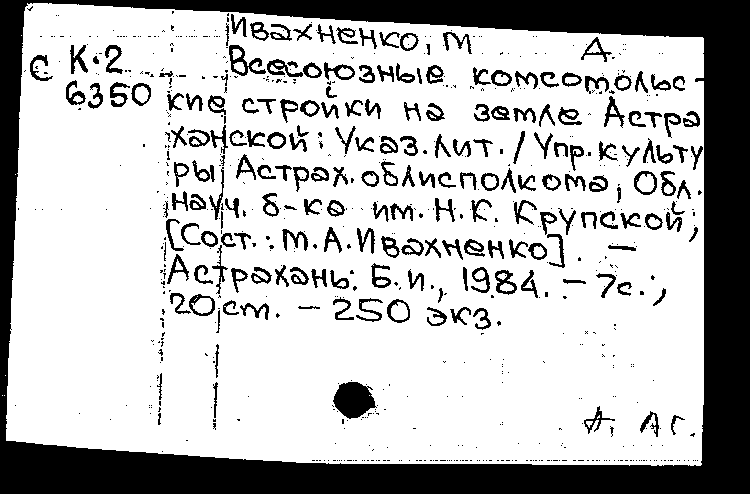 Ивахненко, М А
С К-2 Всесоюзные комсомольс-
6350 кие стройки на земле Астра
ханской: Указ.лит. / Упр.культу
ры Астрах.облисполкома, Обл.
науч. б-ка им. Н.К. Крупской;
[Сост.: М.А.Ивахненко]. —
Астрахань: Б.и., 1984. – 7с.;
20 см. – 250 экз.
А, АГ.